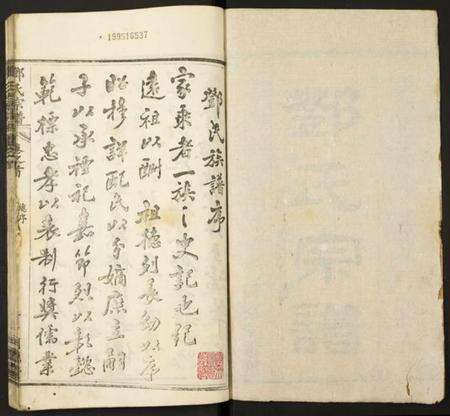 * 199516537
鄧氏族譜序
家乘者一族之史記也紀
遠祖以酬 祖德列長幼以序
昭穆詳配氏以分嫡庶立嗣
子以承禋祀嘉節烈以彰懿
範標忠孝以表制行獎儒業
鄧氏宗譜